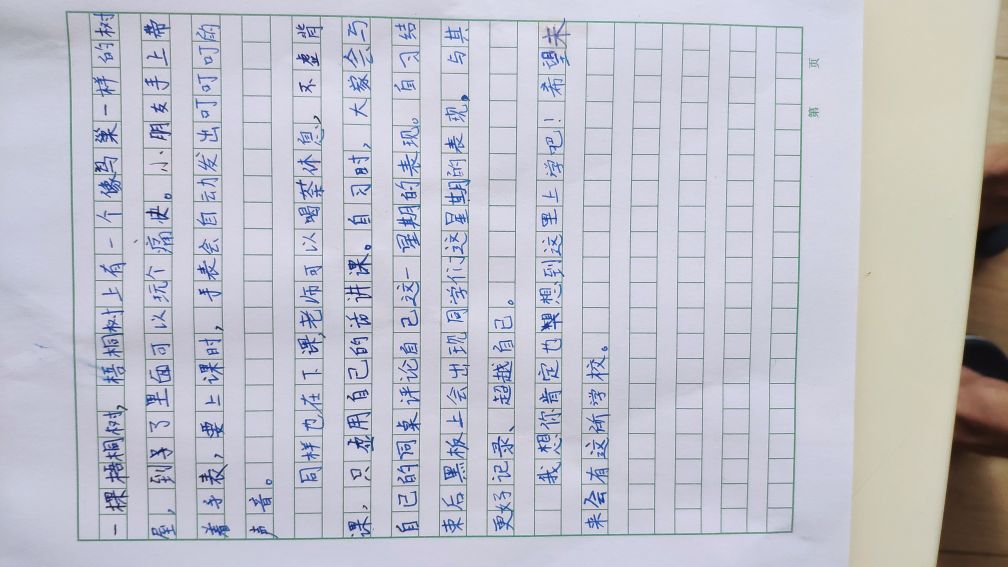 一棵梧桐树，梧桐树上有一个像鸟巢一样的树
屋，到了里面可以玩个痛快。小朋友手上带
着手表，要上课时，手表会自动发出叮叮叮的
声音。
同样也在下课，老师可以喝茶休息，不坐背
课，只用自己的话讲课。自习时，大家会与
自己的同桌评论自己这一星期的表现。自习结
束后黑板上会出现同学们这星期的表现，与其
更好记录、超越自己。
我想你肯定也想到这里上学吧！希望未
来会有这所学校。
第 页